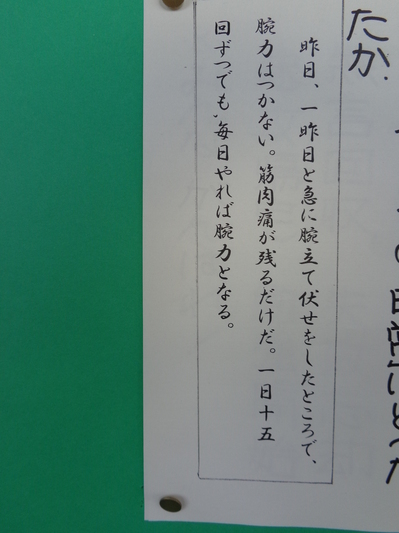 たか
昨日、一昨日と急に腕立て伏せをしたところで、
腕力はつかない。筋肉痛が残るだけだ。一日十五
回ずつでも、毎日やれば腕力となる。